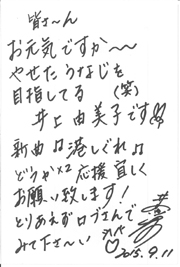 皆さ〜ん
お元気ですか〜
やせたうなじを
目指してる(笑)
井上由美子です!!
新曲♫港しぐれ♫
どうか×2応援宜しく
お願い致します!
とりあえずロブさんで
みて下さ〜い
♡2015.9.11